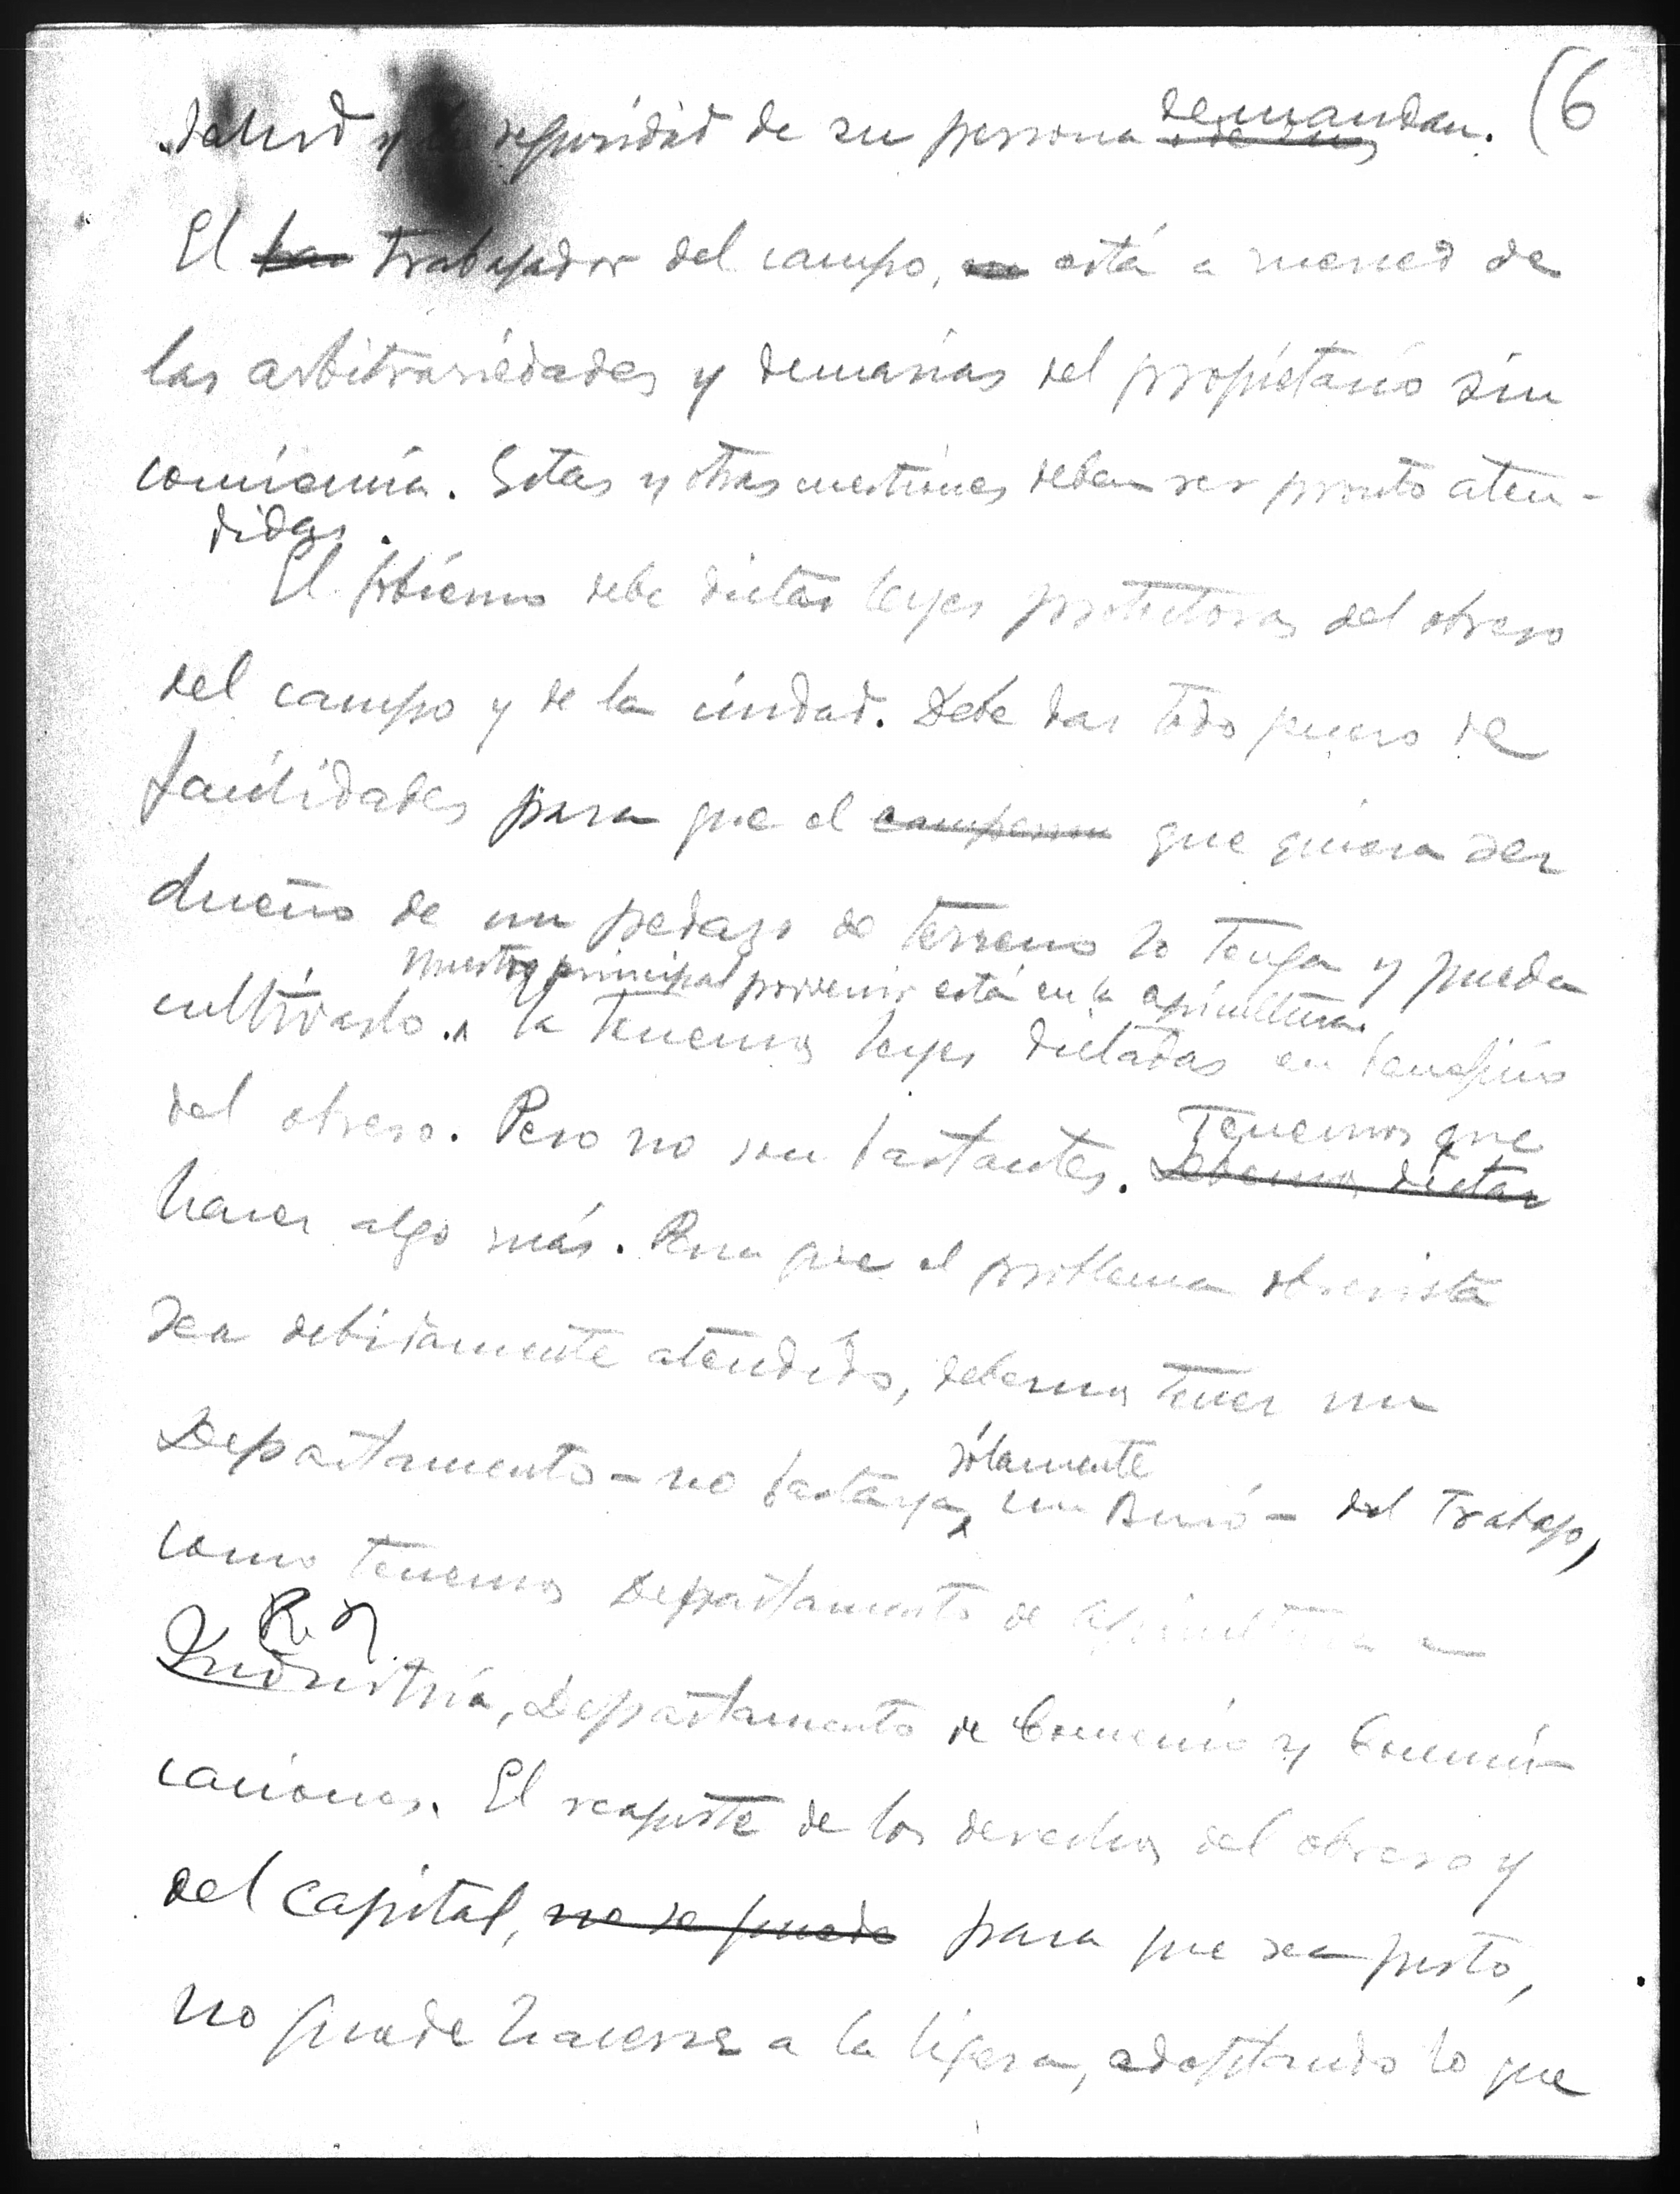 (6
salud y la seguridad de su persona demandan.
El trabajador del campo, está a merced de
las arbitrariedades y demasías del propietario sin
conciencia. Estas y otras cuestiones deben ser pronto aten-
didas.
El gobierno debe dictar leyes protectoras del obrero
del campo y de la ciudad. Debe dar todo género de
facilidades para que el campesino que quiera ser
dueño de un pedazo de terreno lo tenga y pueda
nuestro principal porvenir está en la agricultura.
cultivarlo. Ya tenemos leyes dictadas en beneficio
del obrero. Pero no son bastantes. Debemos dictar
Tenemos que
hacer algo más. Para que el problema obrerista
sea debidamente atendido, debemos tener un
Departamento - no basta ya sólamente un Buró - del Trabajo,
como tenemos Departamento de Agricultura e
Industria, Departamento de Comercio y Comuni-
caciones. El reajuste de los derechos del obrero y
del capital, no se puede para que sea justo,
no puede hacerse a la ligera, adoptando lo que